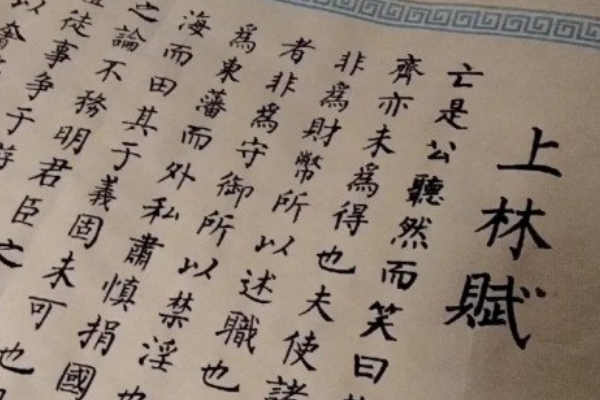 上林賦
亡是公聽然而笑曰
齊亦未為得也夫使諸
非為財幣所以述職也
者非為守御所以禁淫也
為東藩而外私肅慎捐國
海而田其于義固未可也
之論不務明君臣之
徒事争于游
以奢